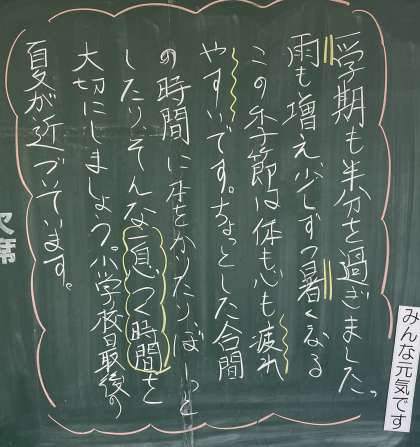 一学期も半分を過ぎました。
雨も増え少しずつ暑くなる
この季節は体も心も疲れ
やすいです。ちょっとした合間
の時間に本をかりたり、ぼーっと
したり、そんな一息つく時間を
大切にしましょう。小学校最後の
夏が近づいています。
みんな元気です